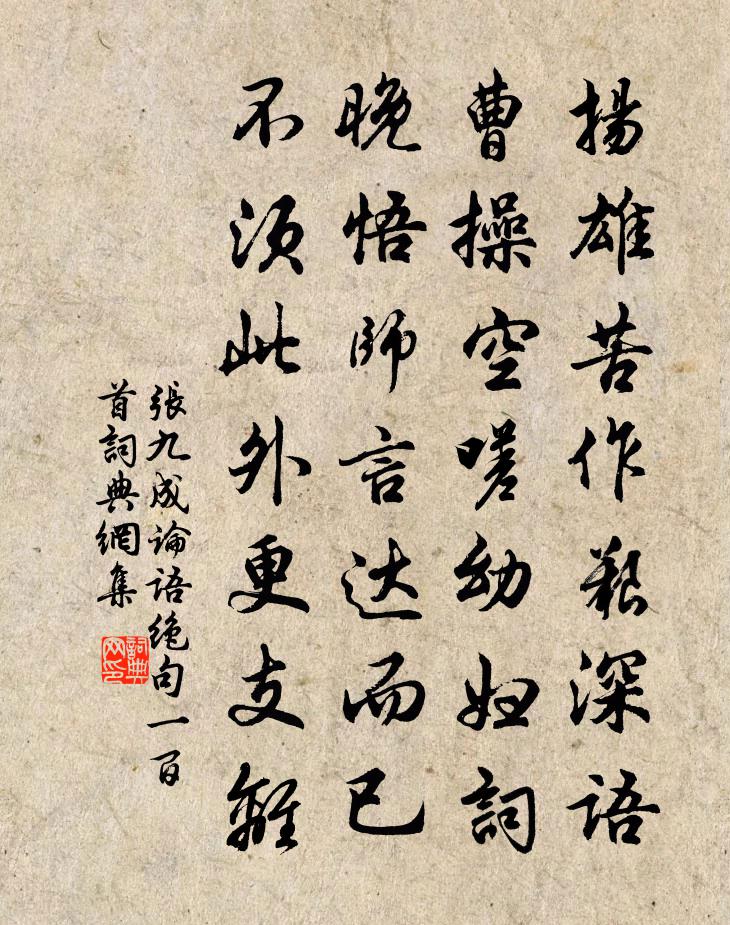 揚雄苦作艱深語
曹操空嗟幼婦詞
晚悟師言达而已
不須此外更支離
張九成論語絶句一百
首詞典網集
詞典
网印